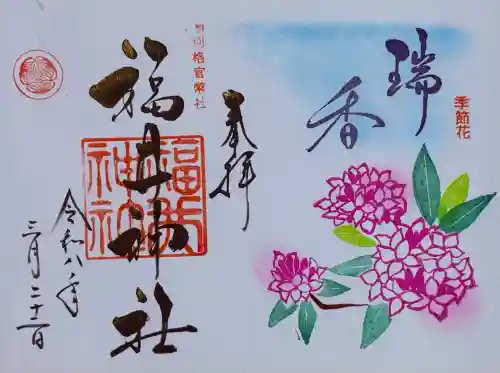 瑞香
季節花
奉拝
別格官幣社
福井神社
福井神社
令和八年
三月二十一日